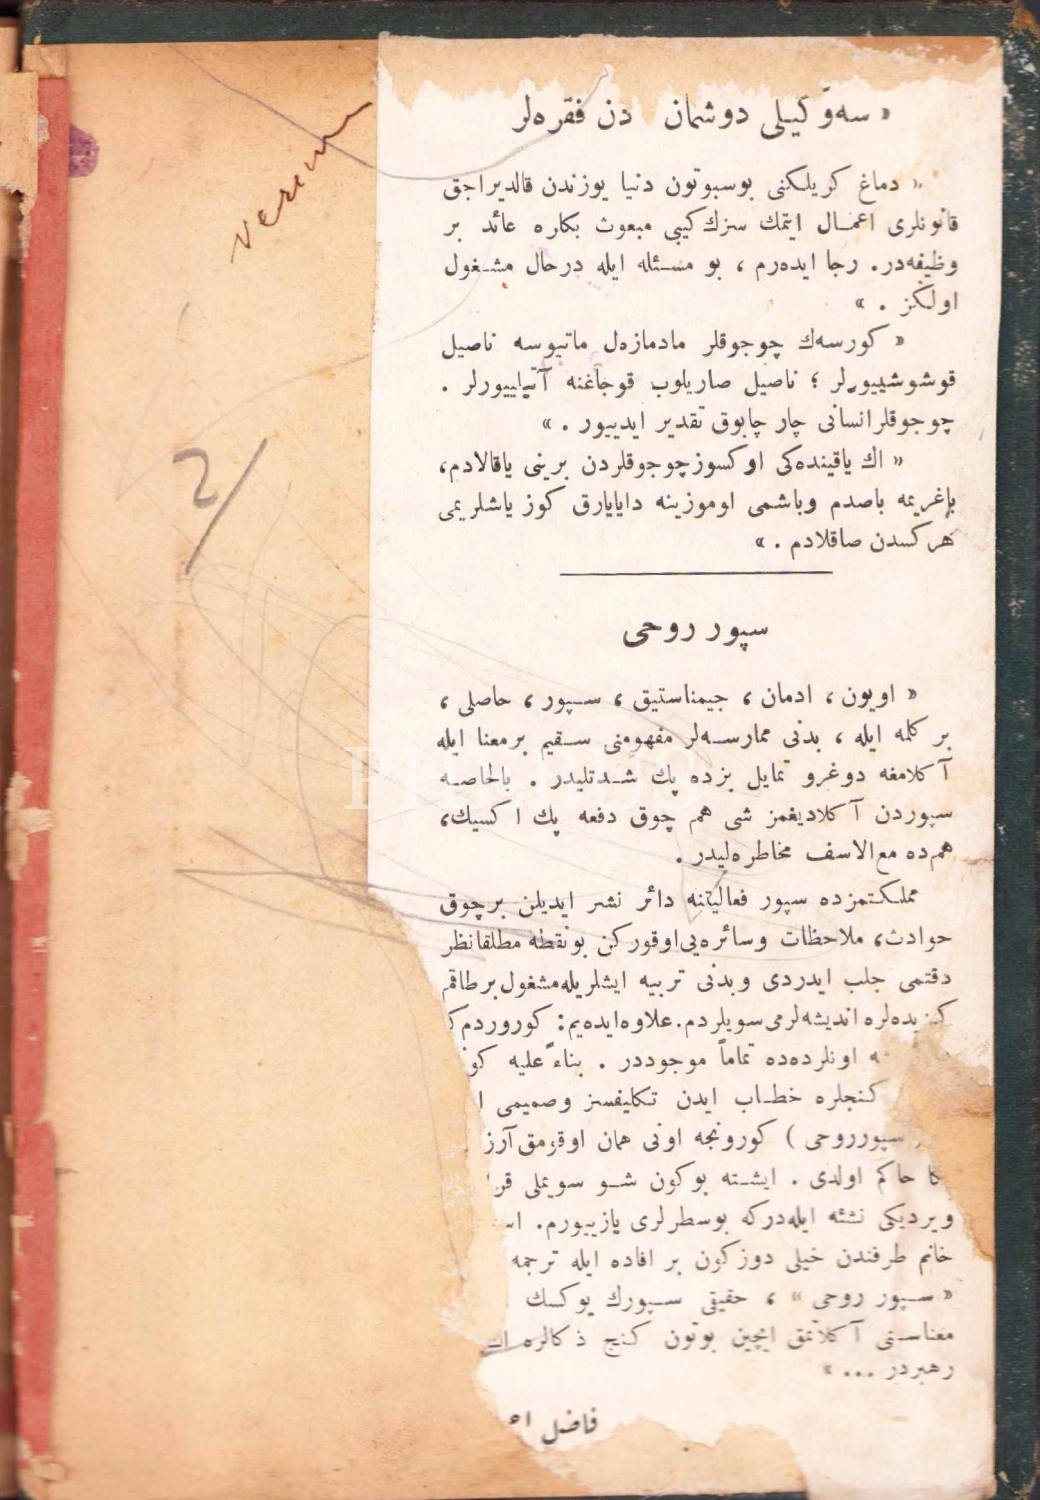 « سەوگیلی دوشمان دن فقره‌لر
« دماغ کریلکنی بوسبوتون دنیا یوزندن قالدیراجق
قانونلری اعمـال ایتمك سزك کیبی مبعوث بکاره عائد بر
وظیفه‌در. رجا ایده‌رم ، بو مسـئله ایله درحال مشـغول
اولکز . »
« کورسه‌ك چوجوقلر مادمازه‌ل ماتیوسه ناصیل
قوشوشییورلر ؛ ناصیل صاریلوب قوجاغنه آتیلییورلر .
چوجوقلر انسانی چار چابوق تقدیر ایدییور . »
« اك یاقینده‌کی اوکسوز چوجوقلردن برینی یاقالادم،
باغریمه باصدم وباشمی اوموزینه دایایارق کوز یاشلریمی
هرکسدن صاقلادم . »
سپور روحی
« اویون ، ادمان ، جیمناستیق ، سـپور ، حاصلی ،
بر کله ایله ، بدنی ممارسـه‌لر مفهومنی سـقیم برمعنا ایله
آکلامغه دوغرو تمایل بزده پك شـدتلیدر . بالخاصـه
سپوردن آکلادیغمز شی هم چوق دفعه پك اکسیك،
هم‌ده مع‌الاسف مخاطره‌لیدر .
مملکـتمزده سپور فعالیتنه دائر نشر ایدیلن برچوق
حوادث، ملاحظات وسائره‌یی اوقورکن بونقطه مطلقا نظر
دقتمی جلب ایدردی وبدنی تربیه ایشلریله مشغول برطاقم
کـزیده‌لره اندیشه‌لرمی سویلردم. علاوه ایده‌یم: کوروردم ک
اونلرده‌ده تماماً موجوددر . بناءً علیه
کنجلره خطـاب ایدن تکلیفسز وصمیمی
سپورروحی ) کورونجه اونی همان اوقومق
حاکم اولدی . ایشـته بوکون شـو سویملی
ویردیکی نشئه ایله‌درکه بوسطرلری یازییورم.
خانم طرفندن خیلی دوزکون بر افاده ایله ترجمه
« سـپور روحی » ، حقیقی سـپورك یوکسك
معناسـنی آکلاتمق ایچین بوتون کنج ذکالره
رهبردر ... »
فاضل
verem
2/